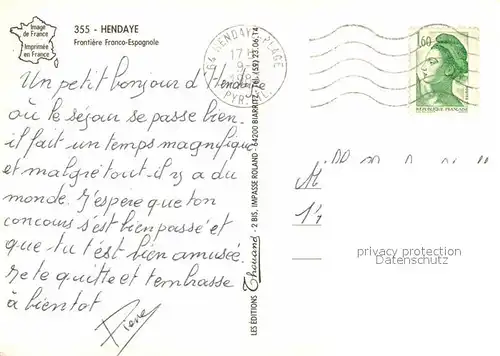 Image
de France
Imprimée
en France
355 - HENDAYE
Frontière Franco-Espagnole
64 HENDAYE-PLAGE
PYR. ATL.
1,60
REPUBLIQUE FRANÇAISE
Un petit bonjour d'Hendaye
où le séjour se passe bien.
il fait un temps magnifique
et malgré tout il y a du
monde. J'espère que ton
concours s'est bien passé et
que tu t'est bien amusée.
Je te quitte et t'embrasse
à bientot
LES ÉDITIONS Thouand - 2 BIS, IMPASSE ROLAND - 64200 BIARRITZ - Tél. (59) 23.06.14
M
privacy protection
Datenschutz